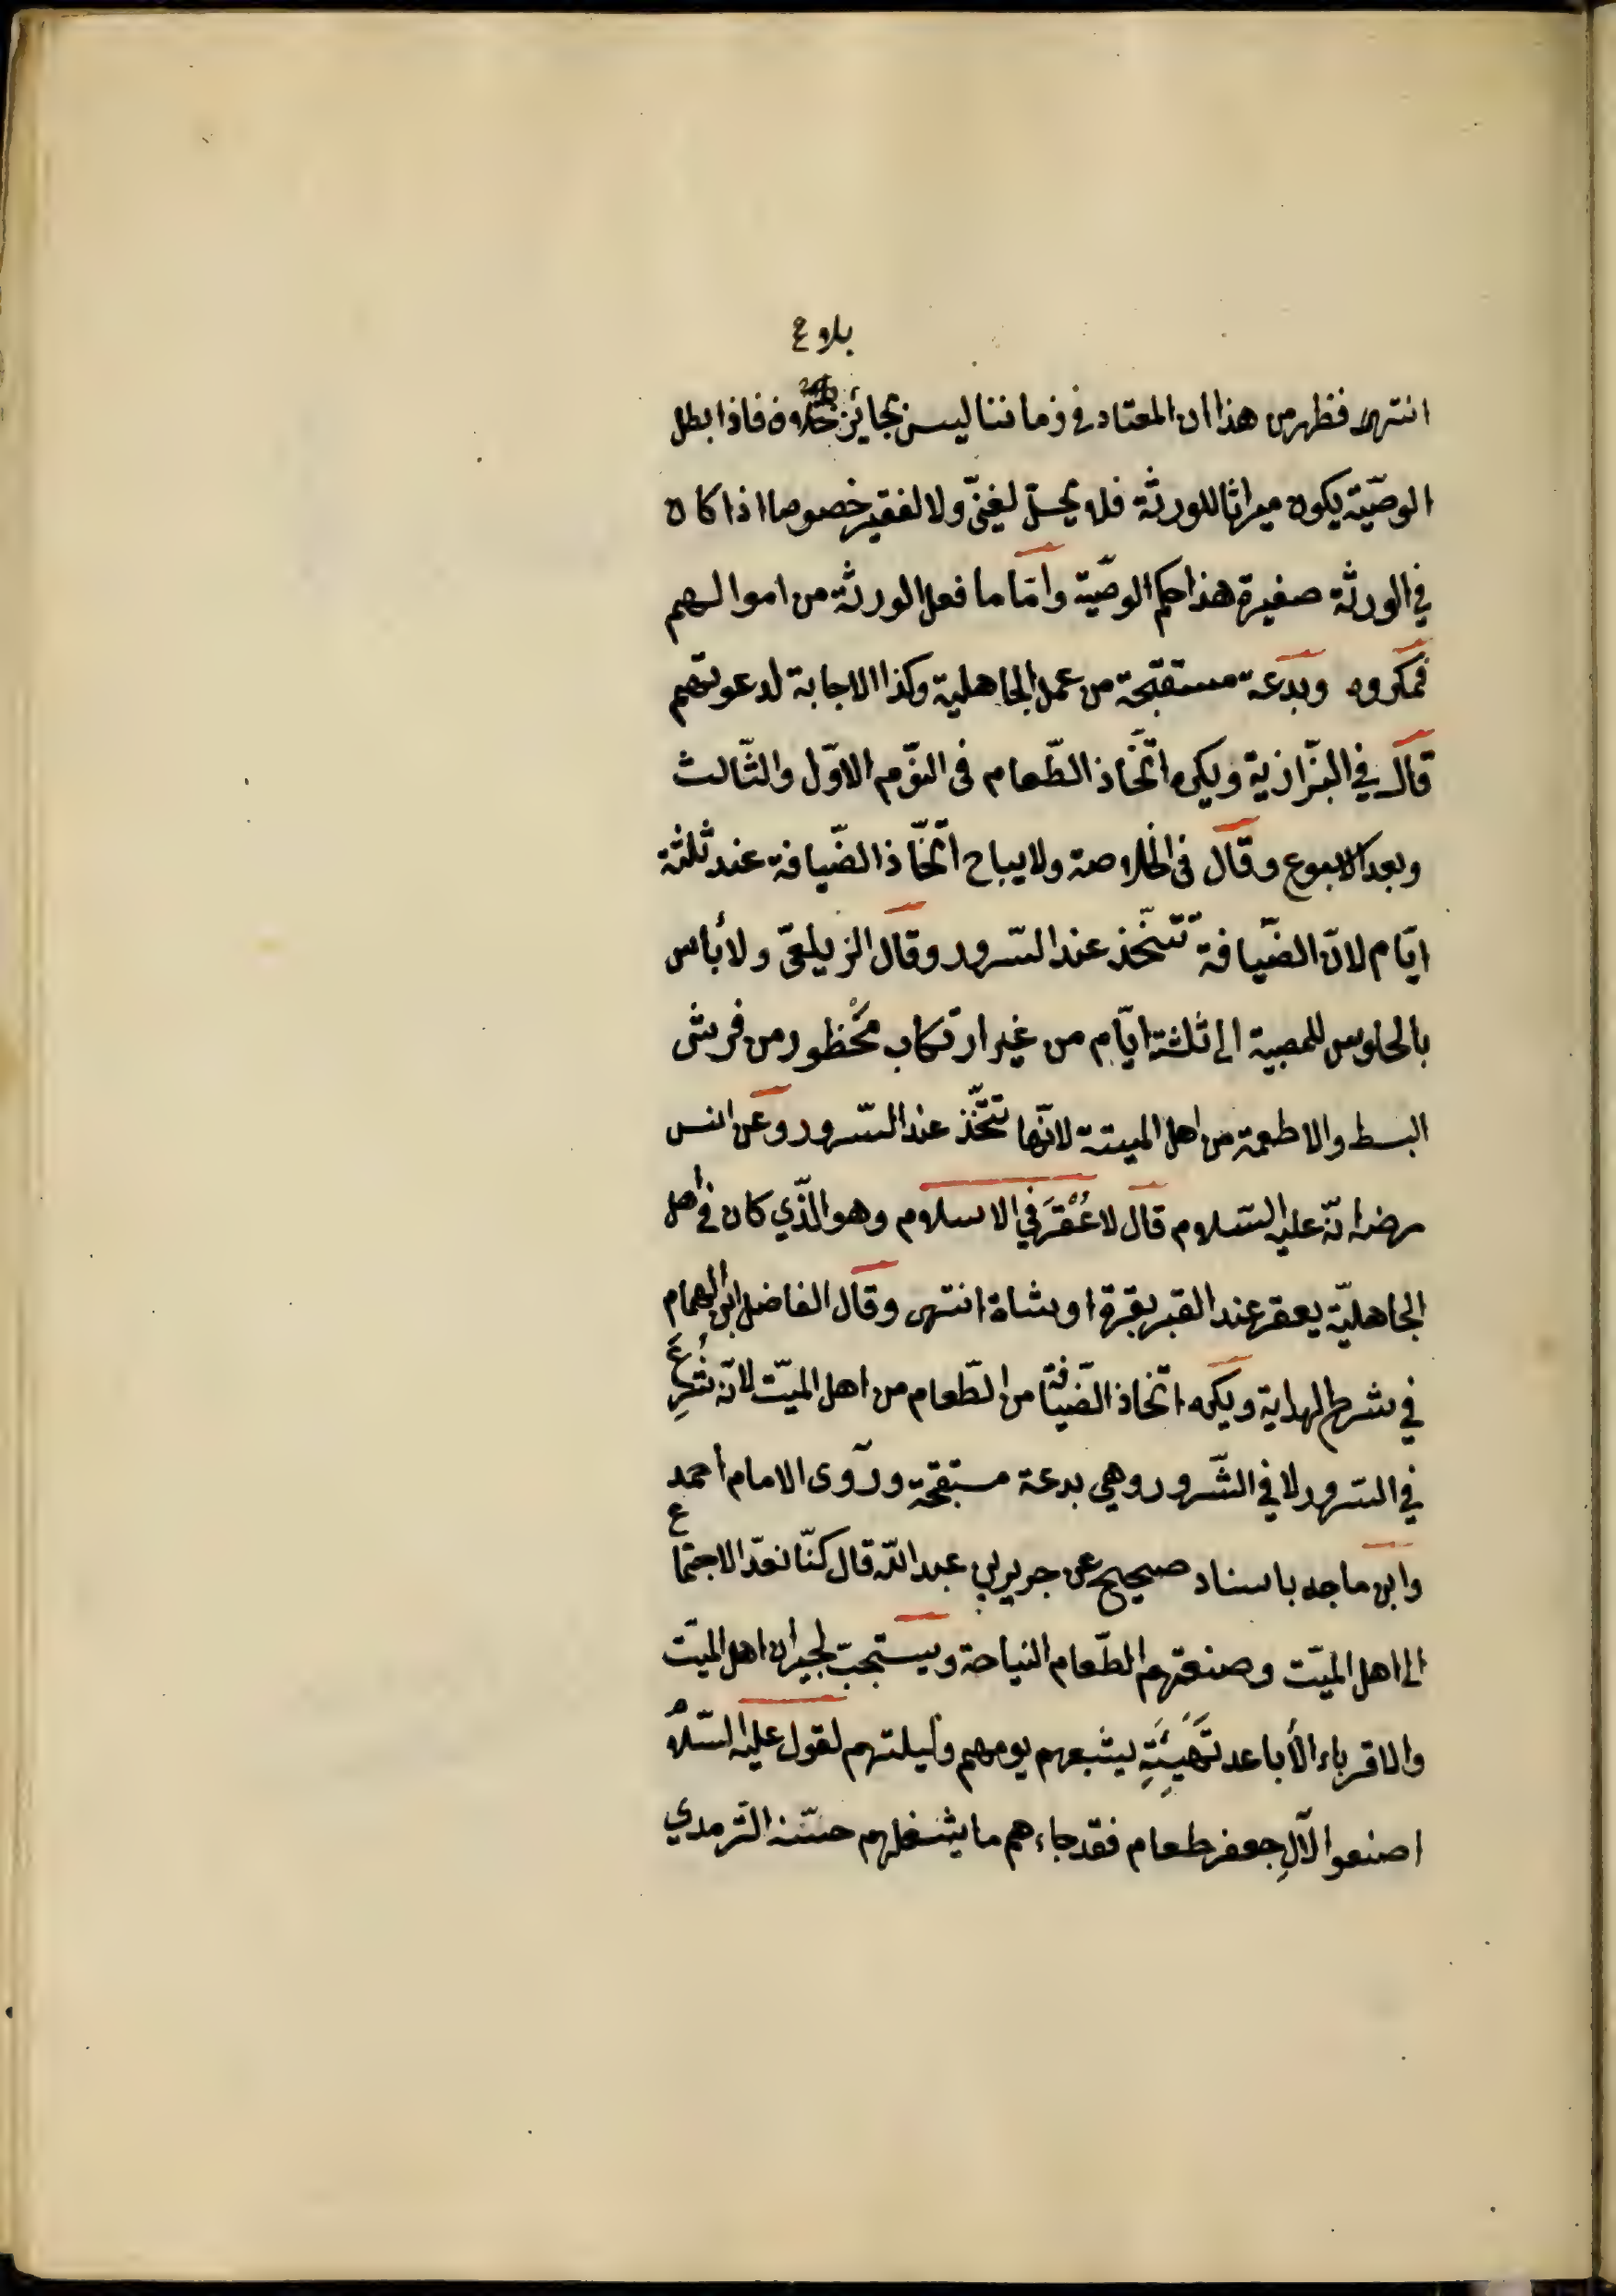 بلاغ
انتهى فظهر من هذا ان المعتاد فى زماننا ليس بجائز فاذا بطل
الوصيّة يكون ميراثا للورثة فلا يحلّ لغنىّ ولا لفقير خصوصا اذا كان
في الورثة صغيرة هذا حكم الوصيّة وأمّا ما فعل الورثة من اموالهم
فمكروه وبدعة مستقبحة من عمل الجاهلية وكذا الاجابة لدعوتهم
قال في البزّازية ويكره اتّخاذ الطّعام فى اليوم الاوّل والثّالث
وبعد الاسبوع وقال فى الخلاصة ولا يباح اتّخاذ الضّيافة عند ثلثة
ايّام لانّ الضّيافة تتّخذ عند السّرور وقال الزيلعىّ ولا بأس
بالجلوس للمصيبة الى ثلثة ايّام من غير ارتكاب محْظور من فرش
البسط والاطعمة من اهل الميتة لانّها تتّخذ عند السّرور وعن انس
رضه انّه عليه السّلام قال لا عُقْرَ في الاسلام وهو الّذي كان في اهل
الجاهليّة يعقر عند القبر بقرة او شاة انتهى وقال الفاضل ابن الهمام
في شرح الهداية ويكره اتّخاذ الضّيافة من الطّعام من اهل الميّت لانّه شُرِعَ
في السّرور لا في الشّرور وهي بدعة مستقبحة وروى الامام أحمد
وابن ماجه باسناد صحيح عن جرير بن عبد اللّه قال كنّا نعدّ الاجتماع
الى اهل الميّت وصنعتهم الطّعام النياحة ويستحبّ لجيران اهل الميّت
والاقرباء الأباعد تَهْيِئَةِ يشبعهم يومهم وليلتهم لقوله عليه السّلام
اصنعوا لآلِ جعفر طعام فقد جاءهم ما يشغلهم حسّنه التّرمدي